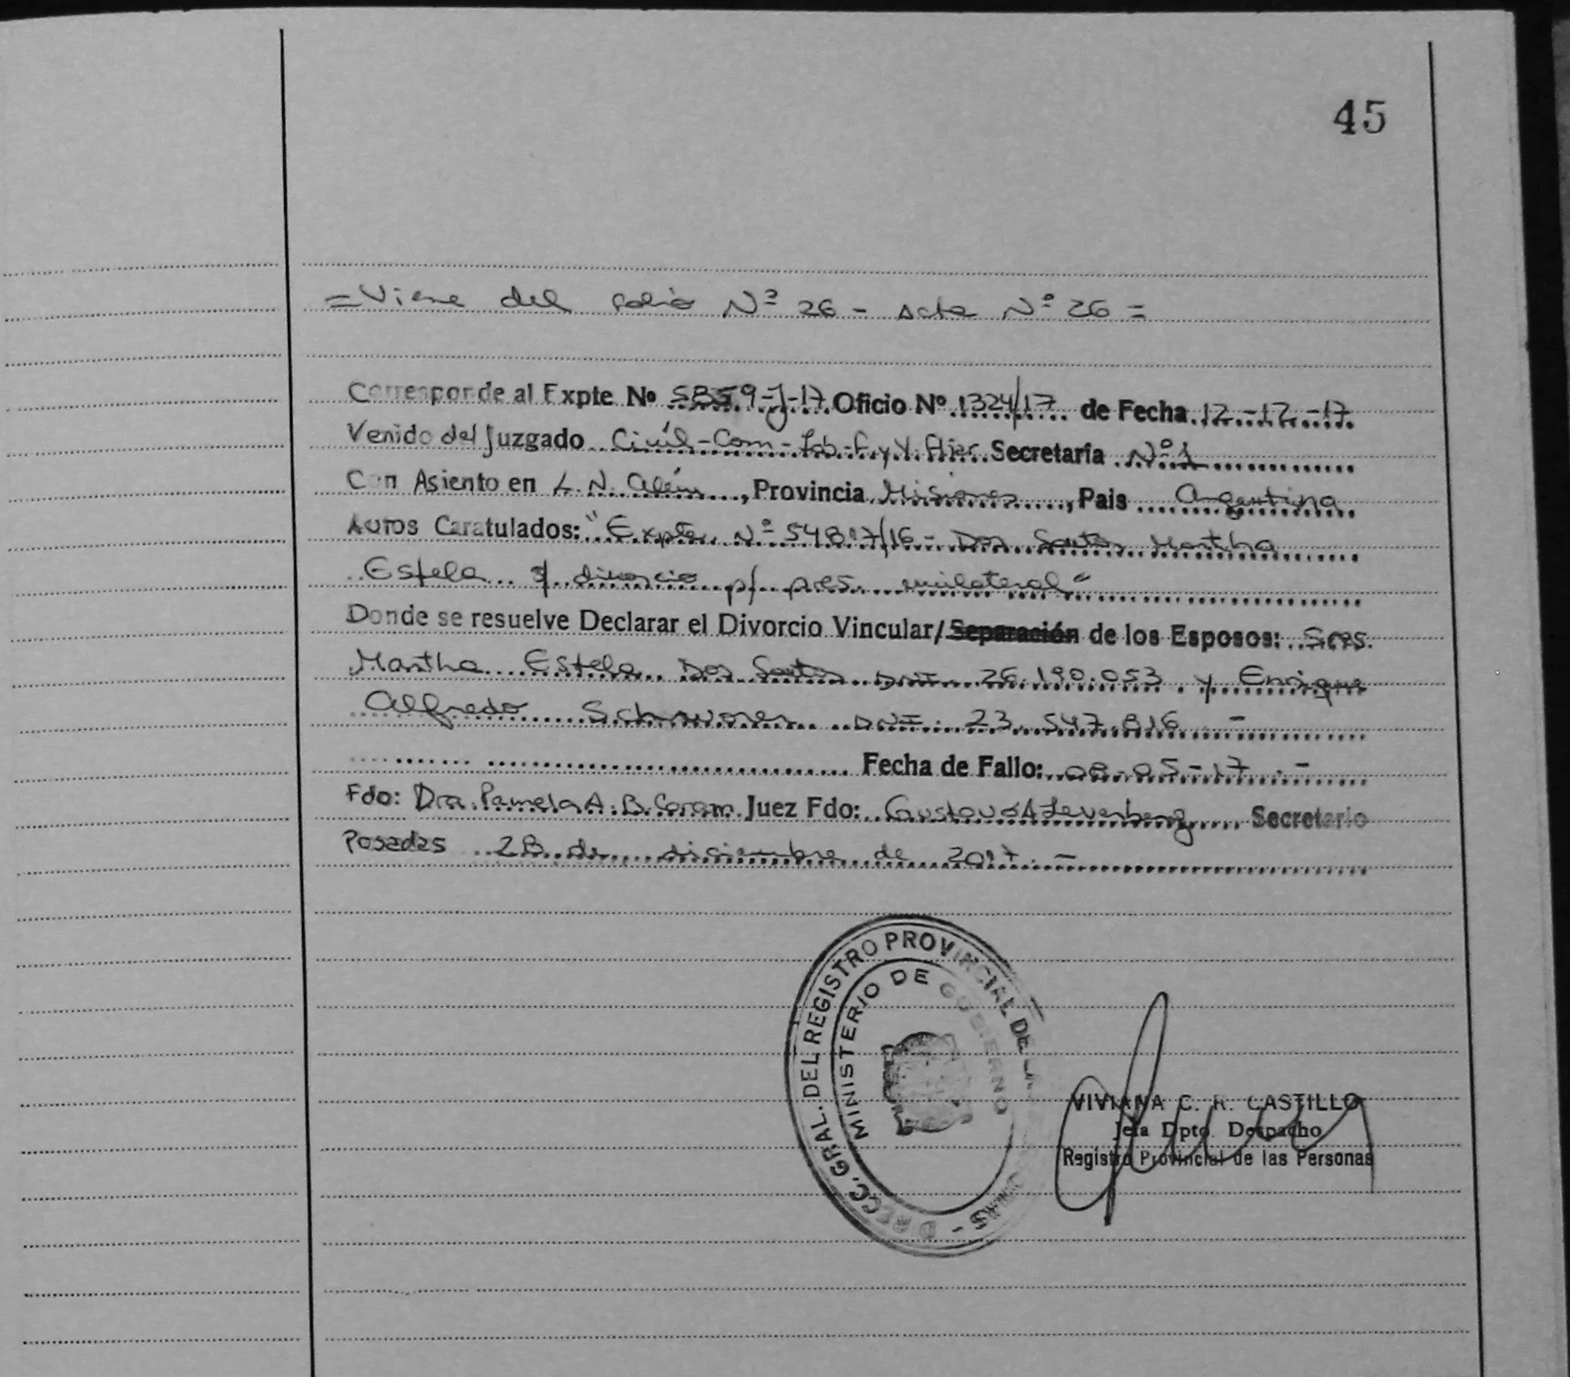 45
=Viene del folio Nº 26 - Acta Nº 26 =
Corresponde al Expte Nº 5859-J-17 Oficio Nº 1324/17 de Fecha 12-12-17
Venido del Juzgado Civil-Com-Lab-F. y V. Secretaría Nº 1
Con Asiento en L. N. Além, Provincia Misiones, Pais Argentina
Autos Caratulados: "Expte. Nº 54817/16 - Dos Santos Martha
Estela s/ divorcio p/ pres. unilateral"
Donde se resuelve Declarar el Divorcio Vincular/Separación de los Esposos: Sres.
Martha Estela Dos Santos DNI 26.190.053 y Enrique
Alfredo DNI. 23.547.816 -
Fecha de Fallo: 08-05-17.-
Fdo: Dra. Pamela A. B. Juez Fdo: Gustavo Secretario
Posadas 28 de diciembre de 2017.-
DIRECC. GRAL. DEL REGISTRO PROVINCIAL DE LAS
MINISTERIO DE GOBIERNO
VIVIANA C. R. CASTILLO
Jefa Dpto. Despacho
Registro Provincial de las Personas